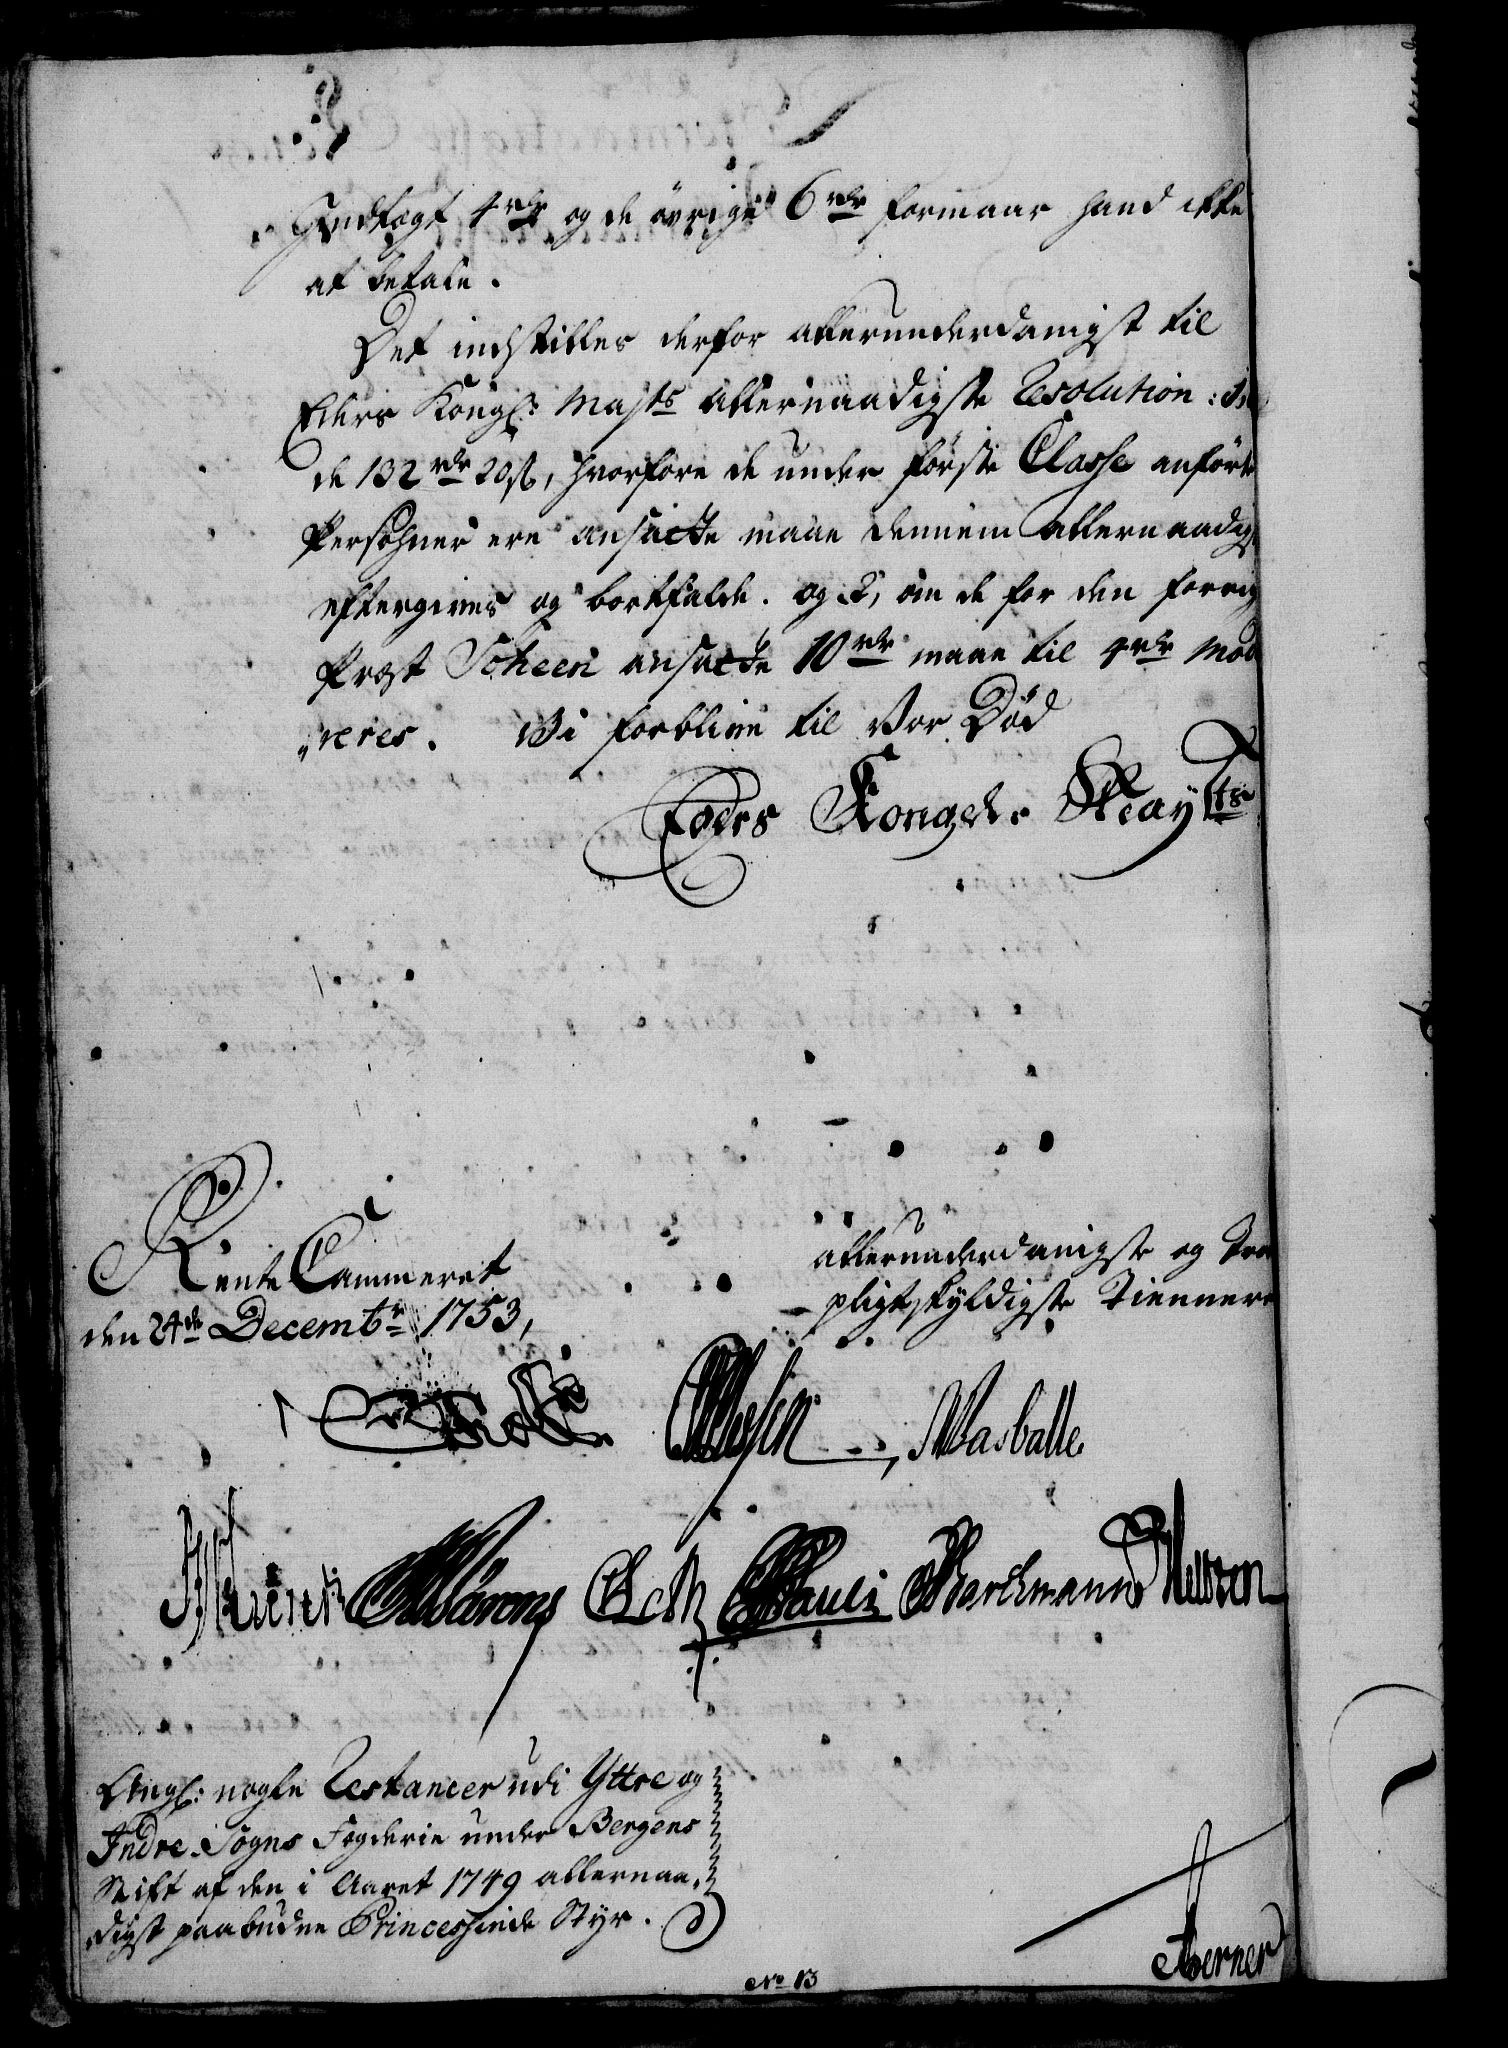 Indtægt 4 rdr og de övrige 6 rdr formaar hand ikke
at betale.
Det indstilles derfor allerunderdanigst til
Eders Kongl: Majts allernaadigste Resolution:
de 132 rdr 20 s, hvorfore de under förste Classe anförte
Persohner ere ansatte maae dennem allernaadigst
eftergives og bortfalde. og 2, om de for den forrig
Præst Scheen ansatte 10 rdr maae til 4 rdr Mode
reres. Vi forblive til Vor Död
Eders Kongel. Mayts
Rente Cammeret
den 24de Decembr 1753,
allerunderdanigste og Tro
pligtskyldigste Tiennere
Masballe
Pauli Barchmann
Angl: nogle Restancer udi Yttre og
Indre Sogns Fogderie under Bergens
Stift af den i Aaret 1749 allernaa,
digst paabudne Princessinde Styr.
Berner
No 13